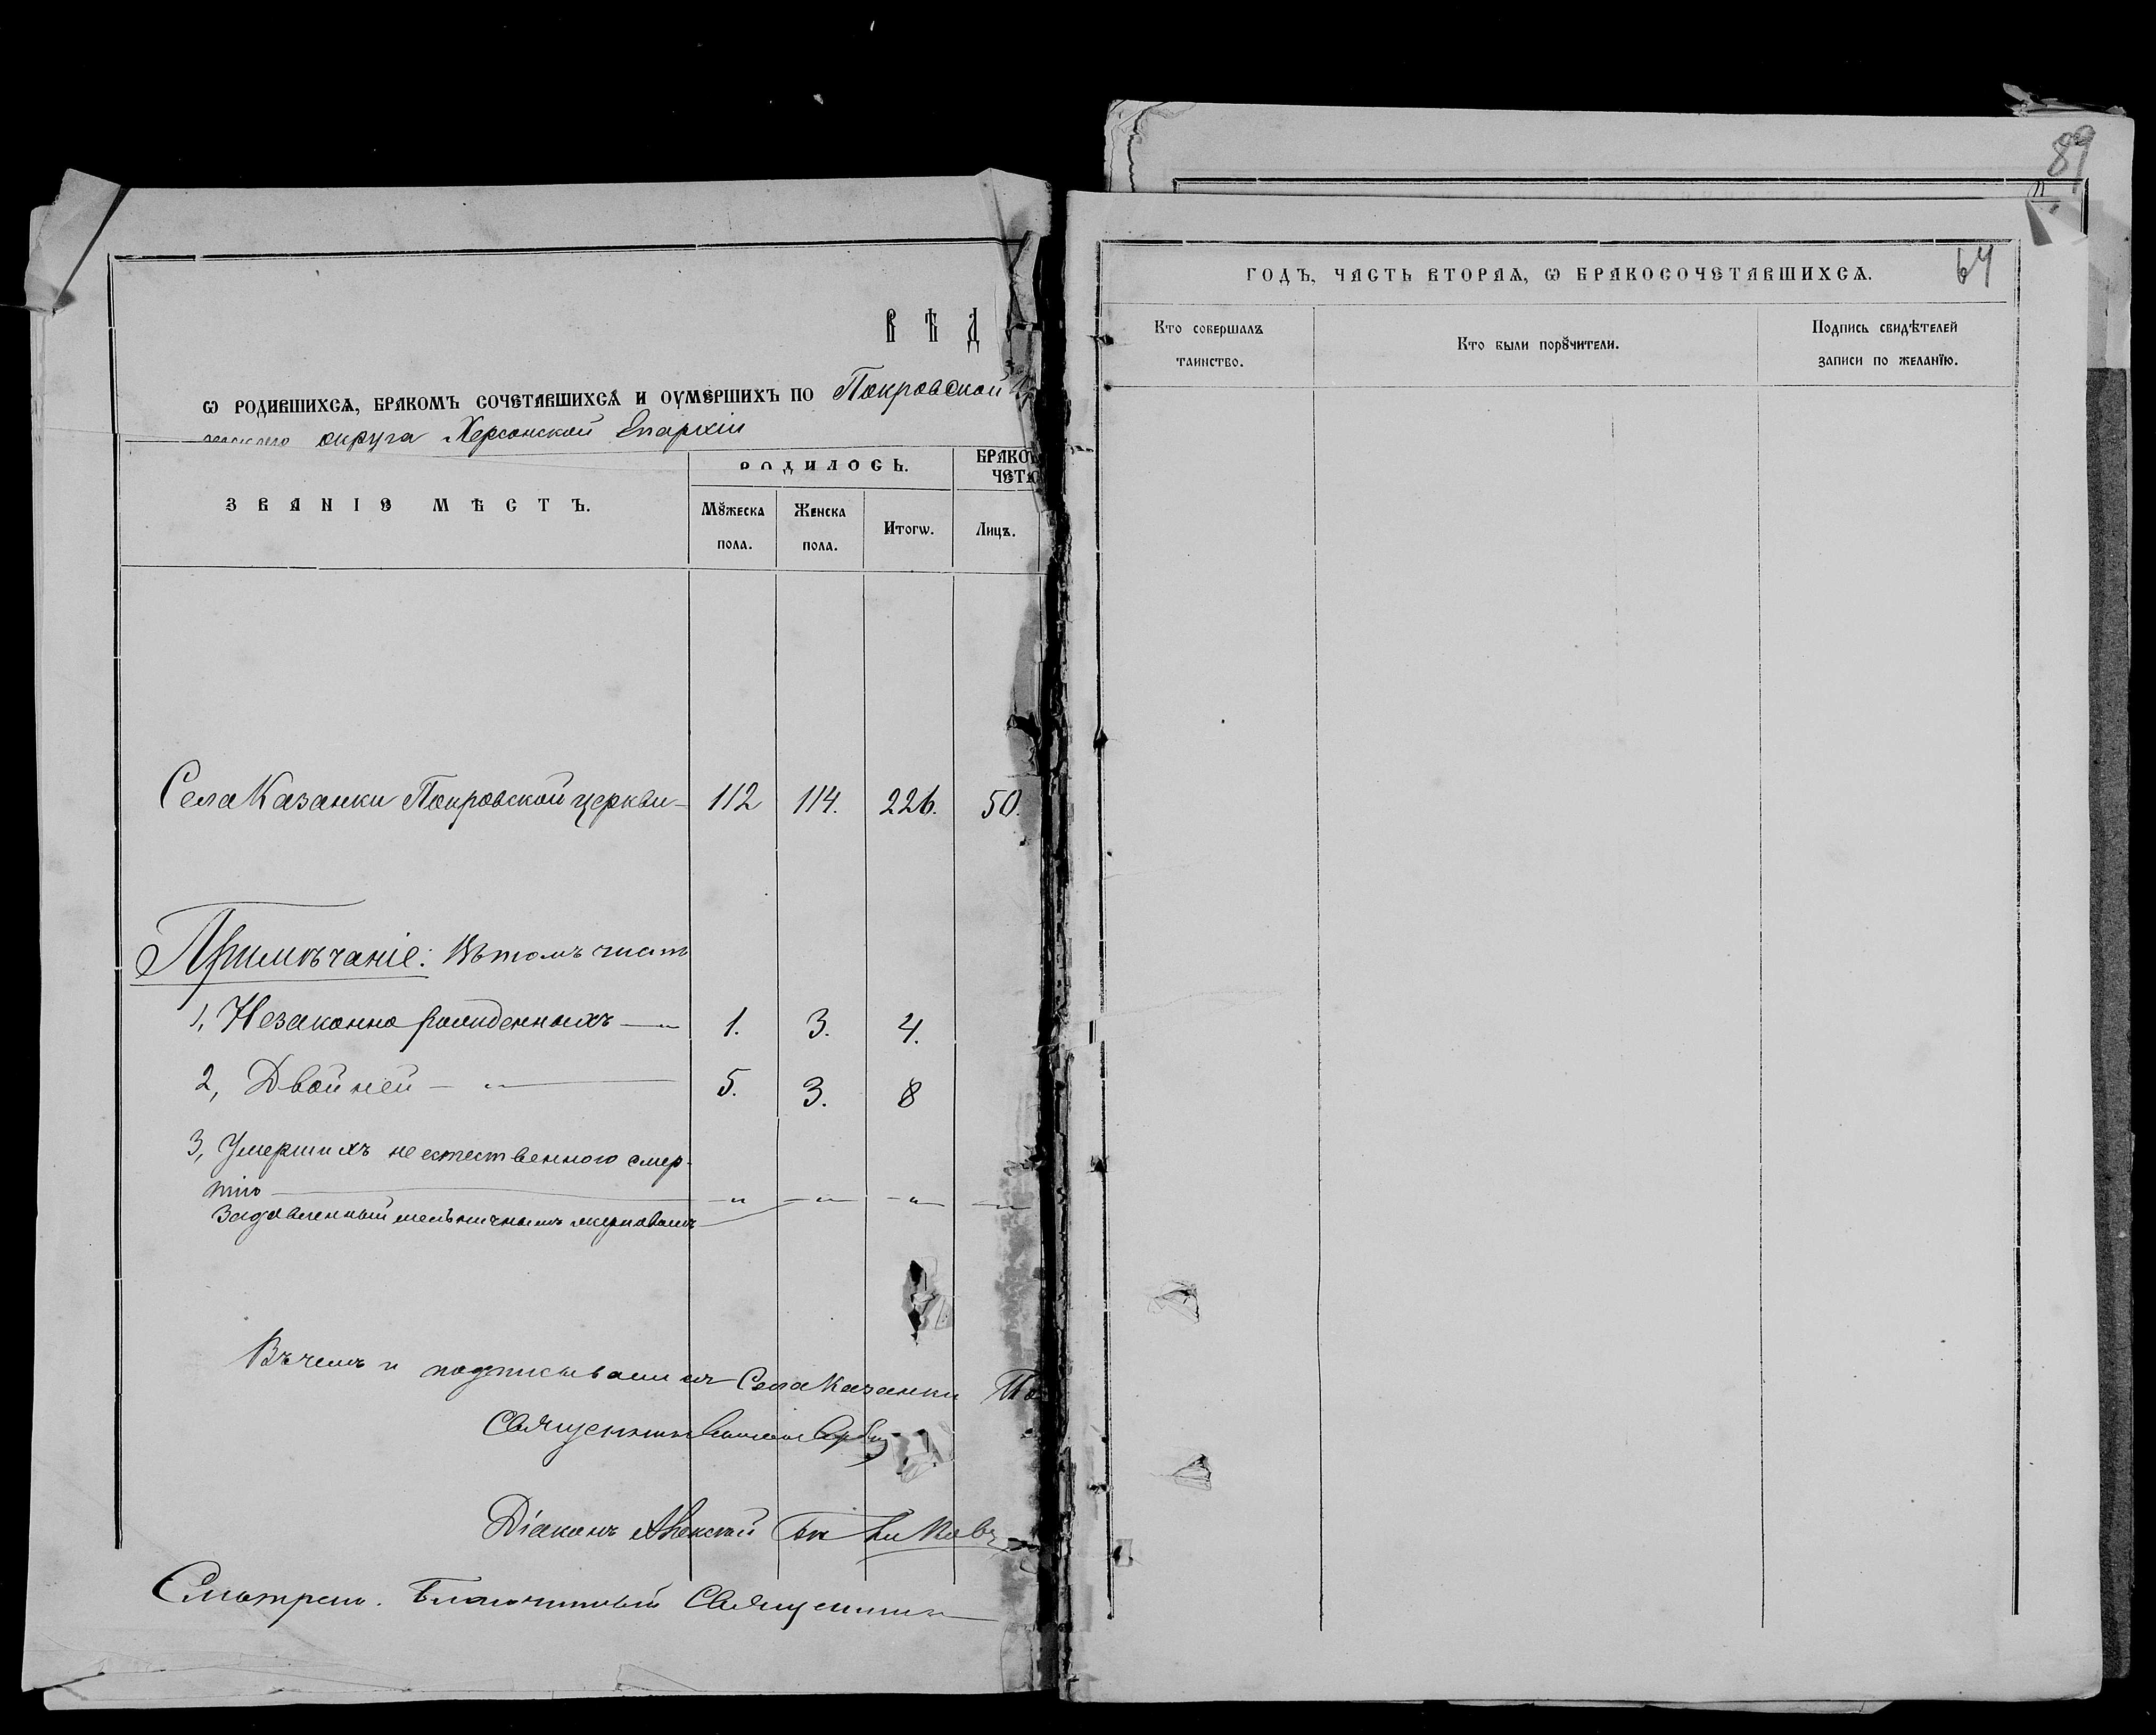 ВѢД
Ѡ РОДИВШИХСѦ, БРАКОМЪ СОЧЕТАВШИХСѦ И ОУМЕРШИХЪ ПО Покровской
округа Херсонской Епархіи
РОДИЛОСЬ.
ЗВАНІЕ МѢСТЪ.
Мꙋжеска пола.
Женска пола.
Итогѡ.
Лицъ.
Села Казанки Покровской церкви - 112 114. 226. 50.
Примѣчаніе: Въ томъ числѣ
1, Незаконно рожденныхъ — 1. 3. 4.
2, Двойней — 5. 3. 8
3, Умершихъ не естественного смер-
тію — „ — „ — „ — „
Задавленный мельничнымъ жерновомъ
Въ чемъ и подписываемся Села Казанки По
Священникъ
Діаконъ Алексѣй
Смотрѣлъ. Благочинный Священникъ
89
64
ГОДЪ, ЧАСТЬ ВТОРАѦ, Ѡ БРАКОСОЧЕТАВШИХСѦ.
Кто совершалъ
таинство.
Кто были порꙋчители.
Подпись свидѣтелей
записи по желанїю.